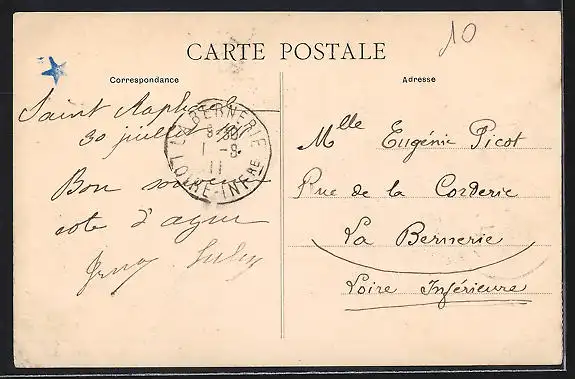 10
CARTE POSTALE
Correspondance
Adresse
Saint Raphael
30 juillet
Bon souvenir
cote d'azur
LA BERNERIE
1 -8
11
LOIRE-INFRE
Mlle Eugénie Picot
Rue de la Corderie
La Bernerie
Loire Inférieure